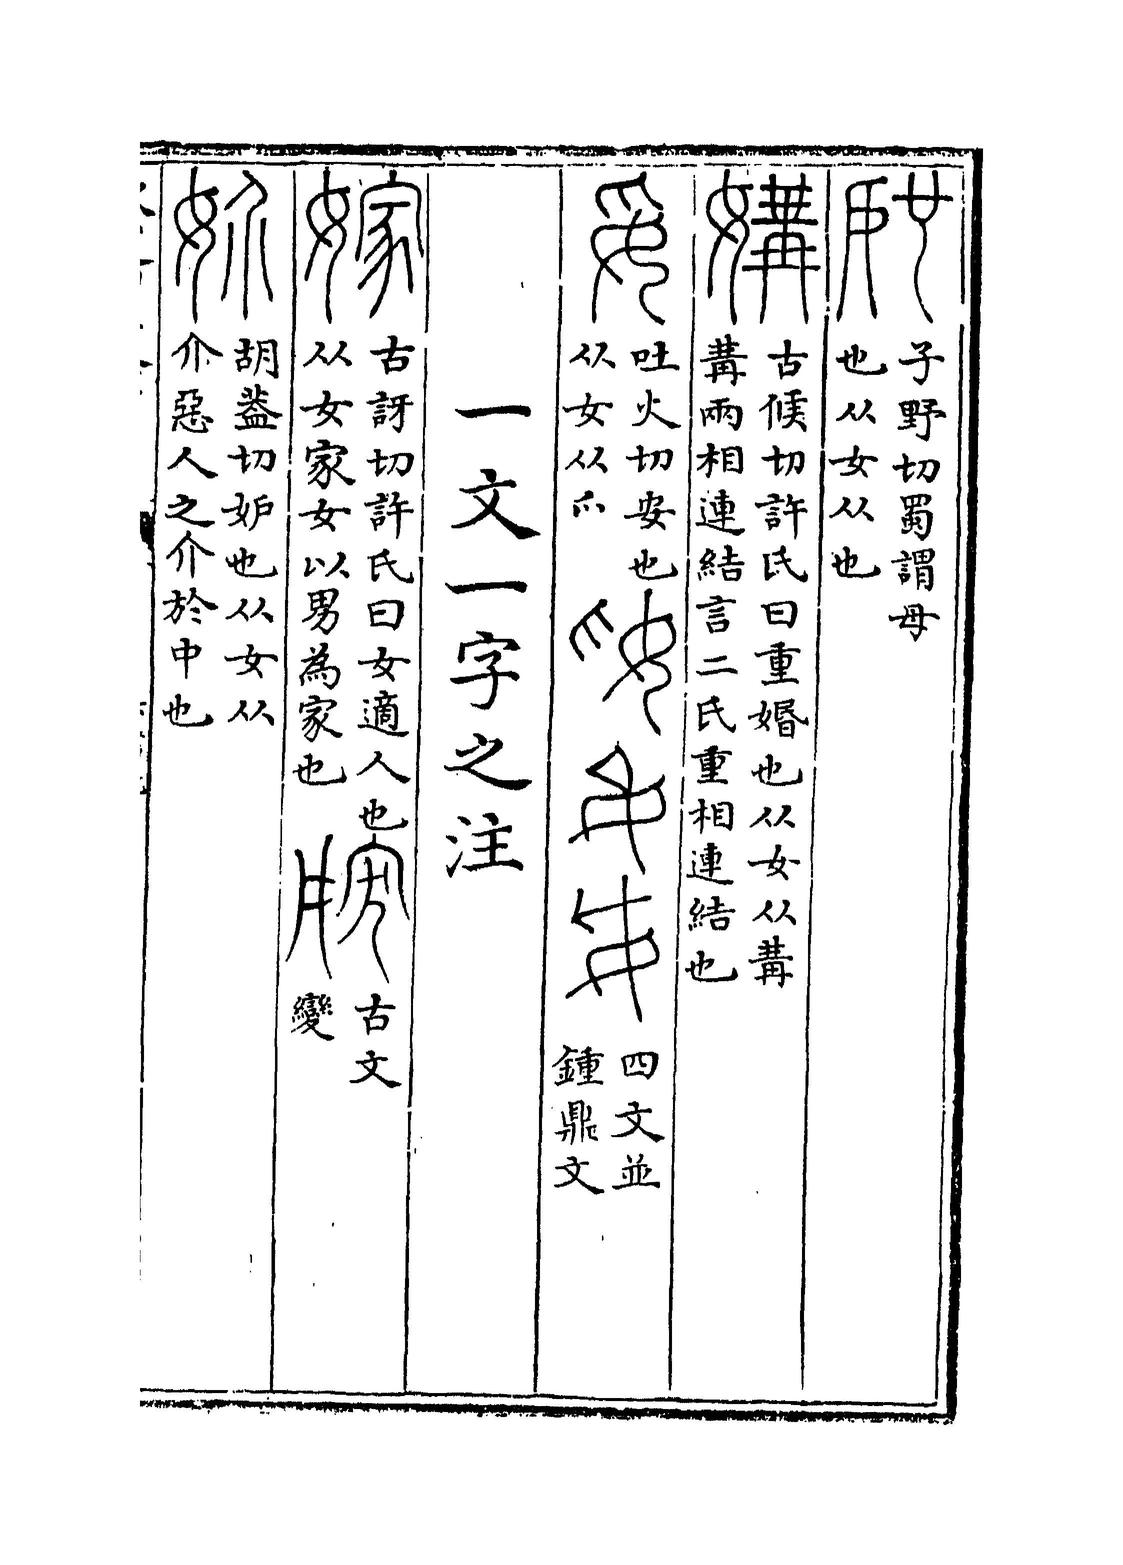 子野切蜀謂母
也从女从也
媾
古候切許氏曰重婚也从女从冓
冓兩相連結言二氏重相連結也
妥
吐火切安也
从女从爪
四文並
鍾鼎文
一文一字之注
嫁
古訝切許氏曰女適人也
从女家女以男為家也
古文
變
妎
胡葢切妒也从女从
介惡人之介於中也